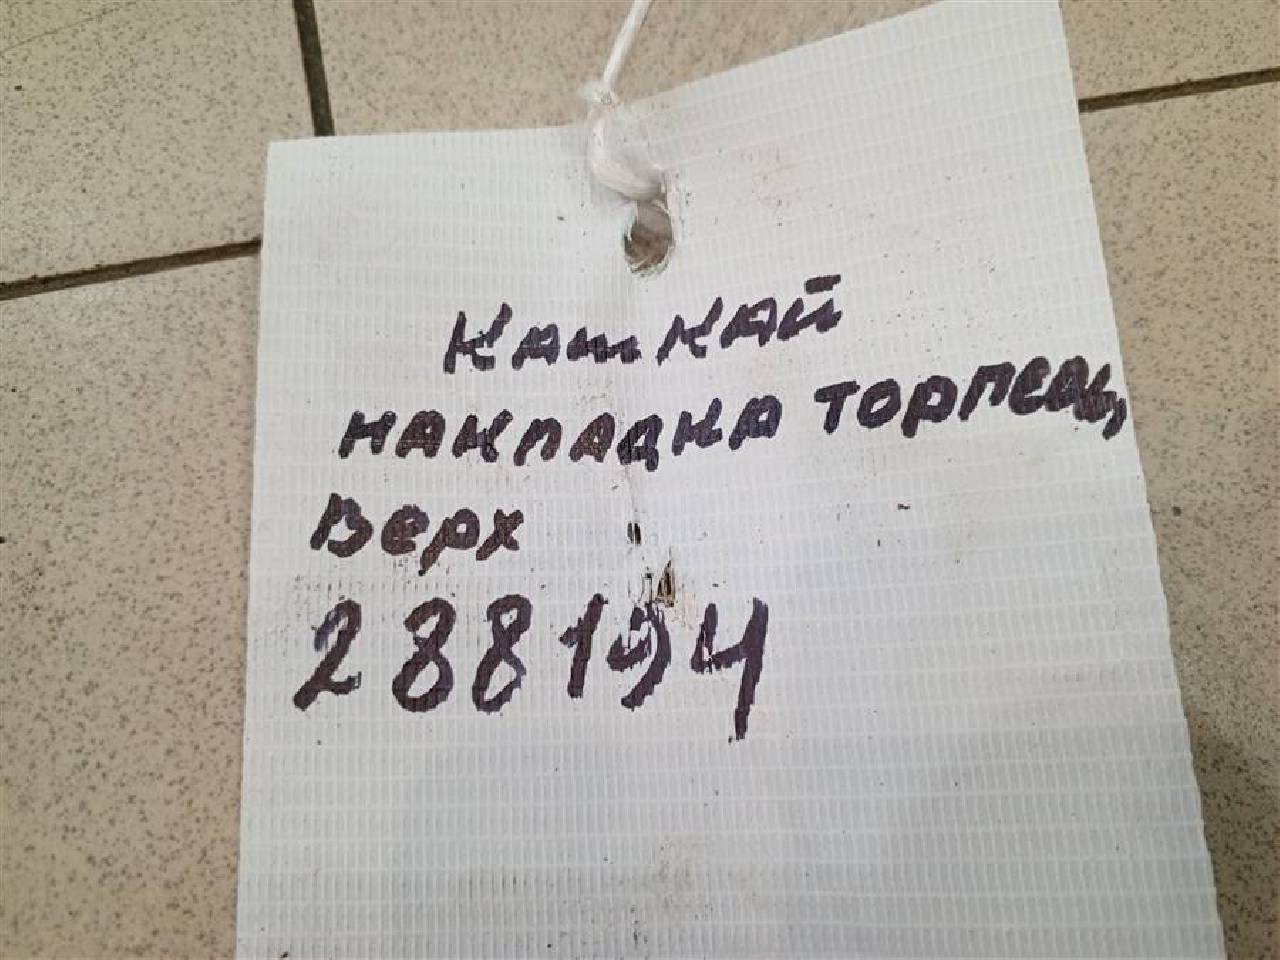 Кашкай
накладка торпеды
верх
288194